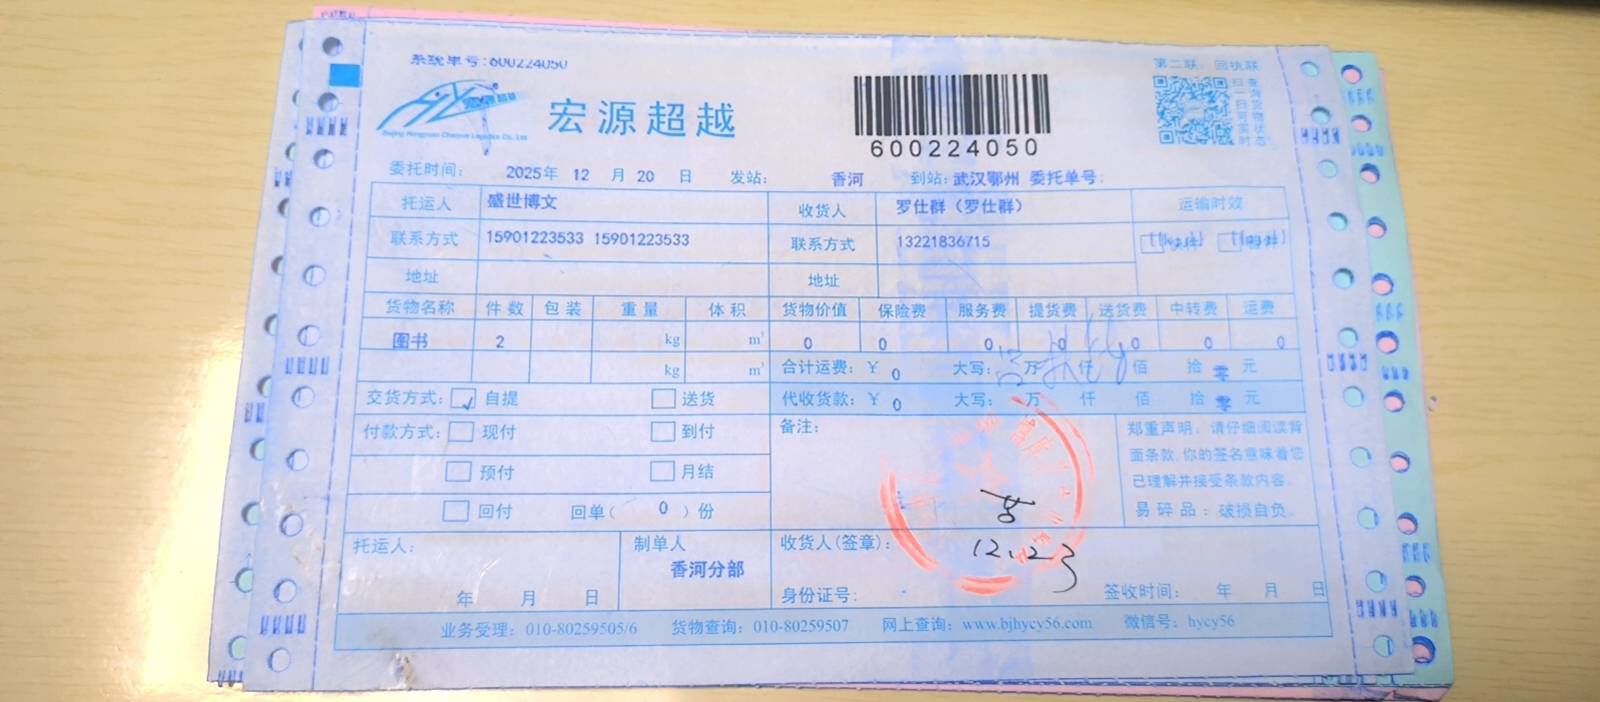 系统单号:600224050
第二联：回执联
扫一扫货物状态
查询扫可实时
Beijing Hongyuan Chaoyue Logistics Co., Ltd
宏源超越
600224050
委托时间: 2025年 12 月 20 日 发站: 香河 到站: 武汉鄂州 委托单号:
托运人 盛世博文 收货人 罗仕群（罗仕群） 运输时效
联系方式 15901223533 15901223533 联系方式 13221836715
地址 地址
货物名称 件数 包装 重量 体积 货物价值 保险费 服务费 提货费 送货费 中转费 运费
图书 2 kg m³ 0 0 0 0 0 0 0
kg m³ 合计运费: ￥ 0 大写: 万 仟 佰 拾 零 元
交货方式: ✓ 自提 送货 代收货款: ￥ 0 大写: 万 仟 佰 拾 零 元
付款方式: 现付 到付 备注: 郑重声明: 请仔细阅读背
面条款,你的签名意味着您
预付 月结 已理解并接受条款内容.
回付 回单( 0 )份 易碎品: 破损自负.
托运人: 制单人 收货人(签章): 12.23
香河分部
年 月 日 身份证号: 签收时间: 年 月 日
业务受理: 010-80259505/6 货物查询: 010-80259507 网上查询: www.bjhycy56.com 微信号: hycy56